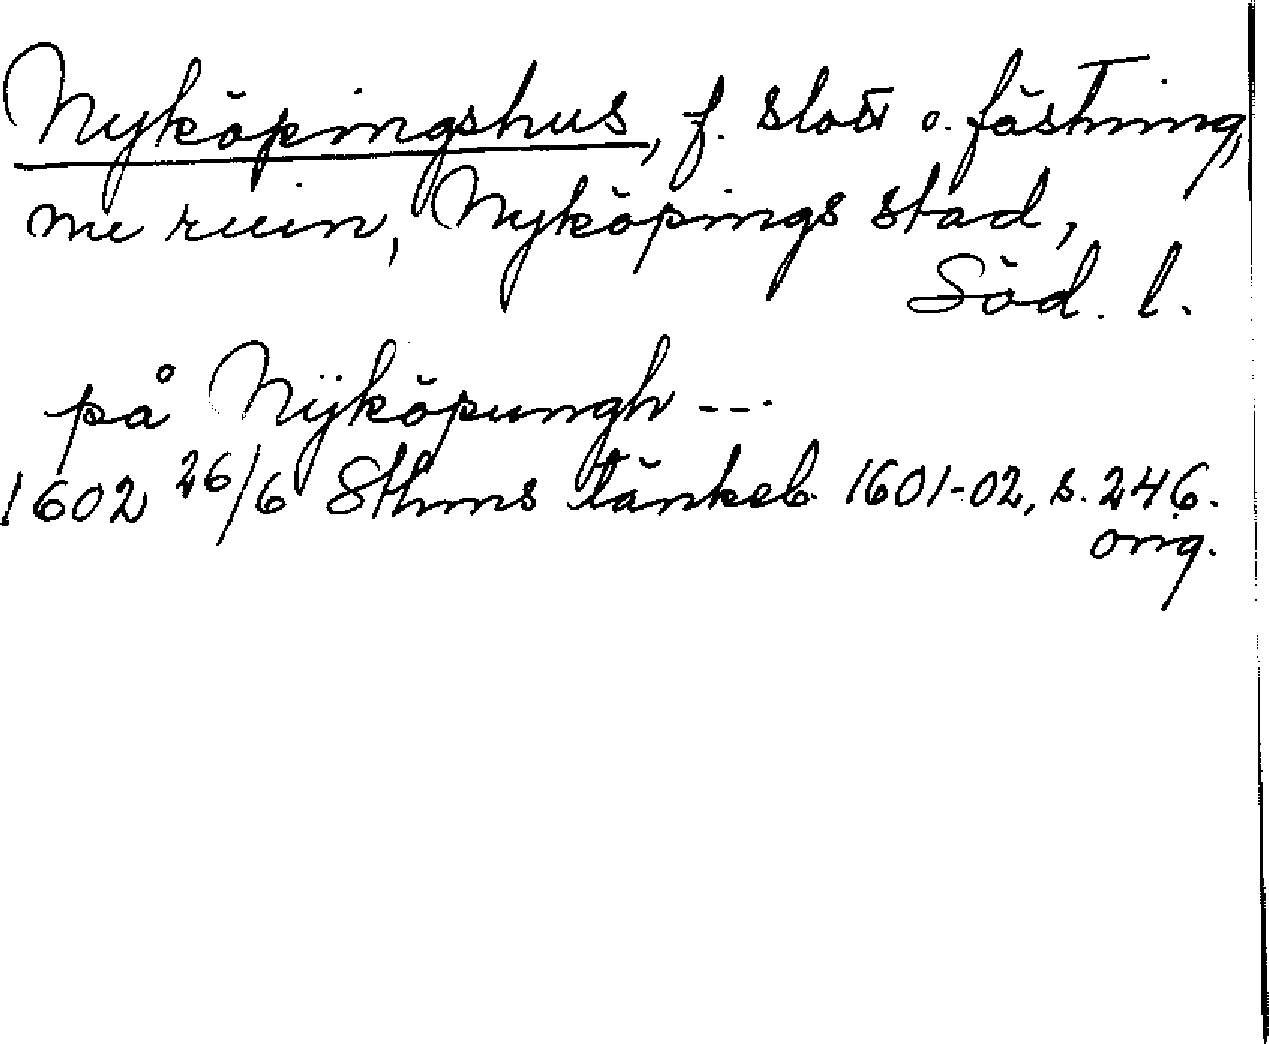 Nyköpingshus, f. slott o. fästning,
nu ruin, Nyköpings stad,
Söd. l.
på Nÿköpungh ---
1602 26/6 Sthms tänkeb. 1601-02, s. 246.
orig.